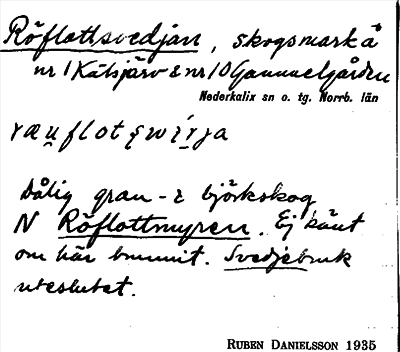 Röflottsvedjan, skogsmark å
nr 1 Kälsjärv & nr 10 Gammelgården
Nederkalix sn o. tg. Norrb. län
Dålig gran- & björkskog
N Röflottmyren. Ej känt
om här brunnit. Svedjebruk
uteslutet.
RUBEN DANIELSSON 1935